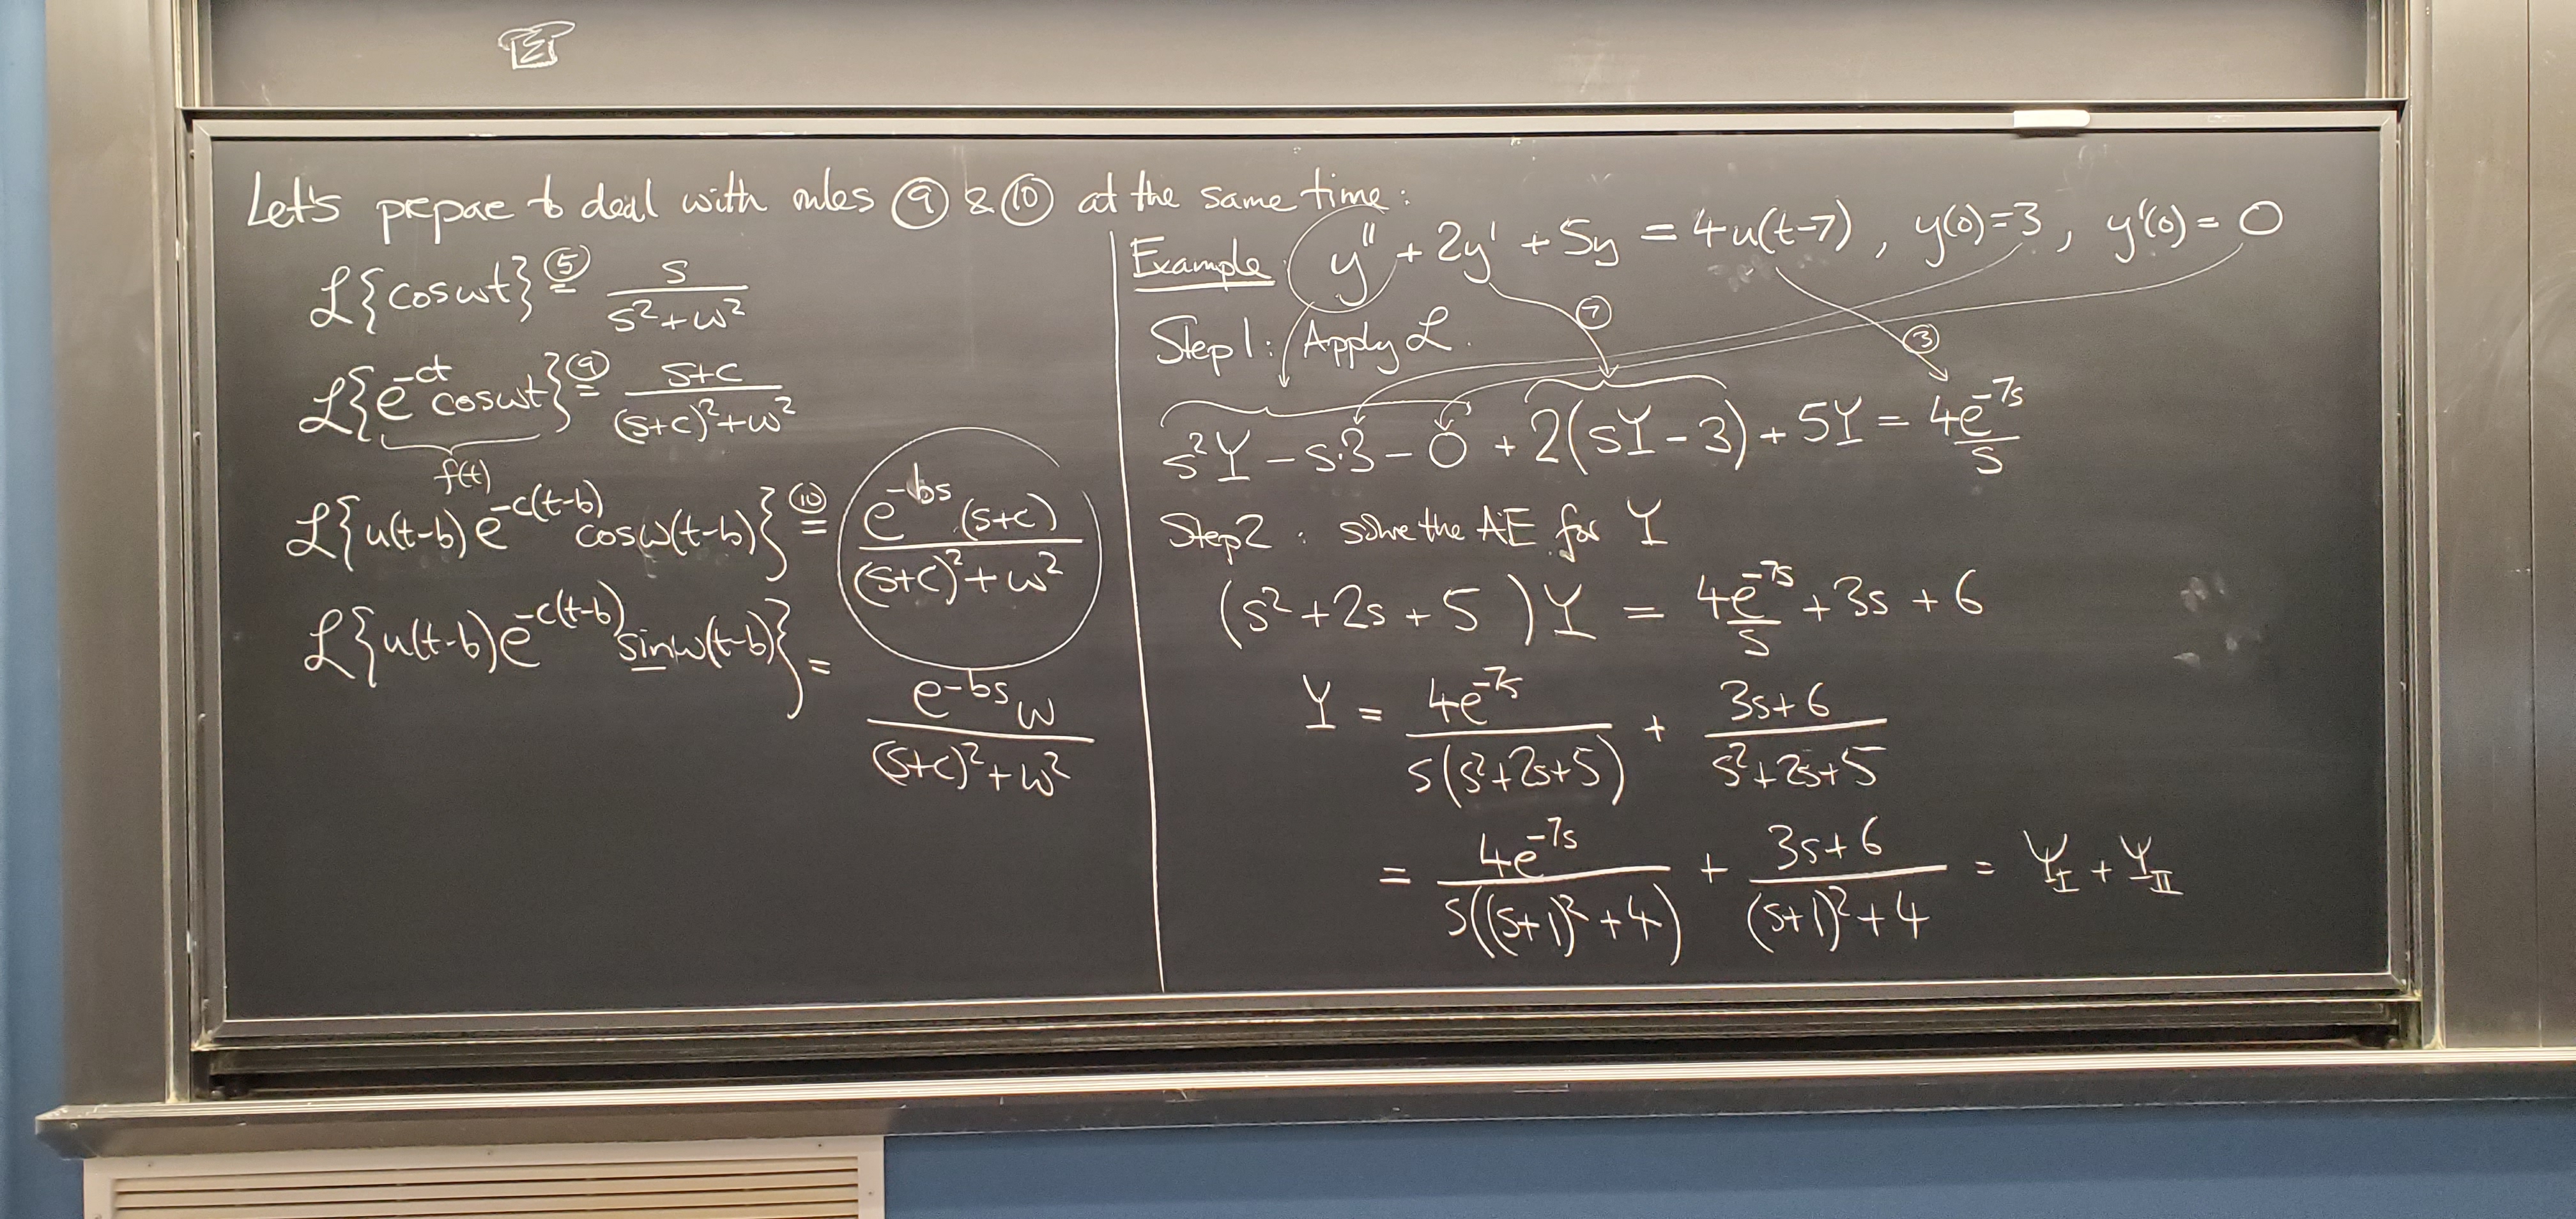 Let's prepare to deal with rules ⑨ & ⑩ at the same time:
ℒ{cosωt} ⑤= s/(s²+ω²)
ℒ{e^(-ct) cosωt} ⑨= (s+c)/((s+c)²+ω²)
f(t)
ℒ{u(t-b)e^(-c(t-b)) cosω(t-b)} ⑩= e^(-bs)·(s+c)/((s+c)²+ω²)
ℒ{u(t-b)e^(-c(t-b)) sinω(t-b)} = e^(-bs)ω/((s+c)²+ω²)
Example: y'' + 2y' + 5y = 4u(t-7), y(0)=3, y'(0)=0
Step 1: Apply ℒ.
⑦
③
s²Y - s·3 - 0 + 2(sY-3) + 5Y = 4e^(-7s)/s
Step 2: solve the AE for Y
(s²+2s+5)Y = 4e^(-7s)/s + 3s + 6
Y = 4e^(-7s)/(s(s²+2s+5)) + (3s+6)/(s²+2s+5)
= 4e^(-7s)/(s((s+1)²+4)) + (3s+6)/((s+1)²+4) = Y_I + Y_II